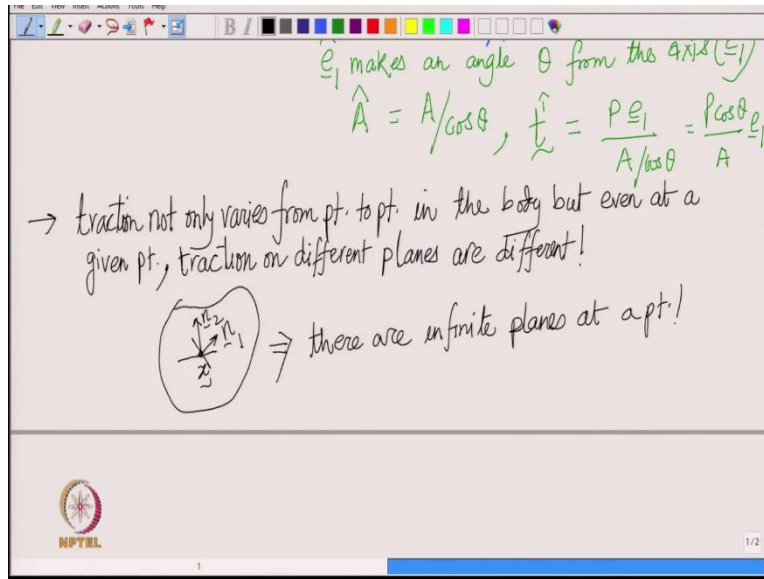 File Edit View Insert Actions Tools Help
B I
ê₁ makes an angle θ from the axis (e₁)
Â = A/cosθ, t̂¹ = P e₁ / (A/cosθ) = P cosθ / A e₁
→ traction not only varies from pt. to pt. in the body but even at a
given pt., traction on different planes are different!
n₂
n₁
x
⇒ there are infinite planes at a pt.!
NPTEL
1/2
1